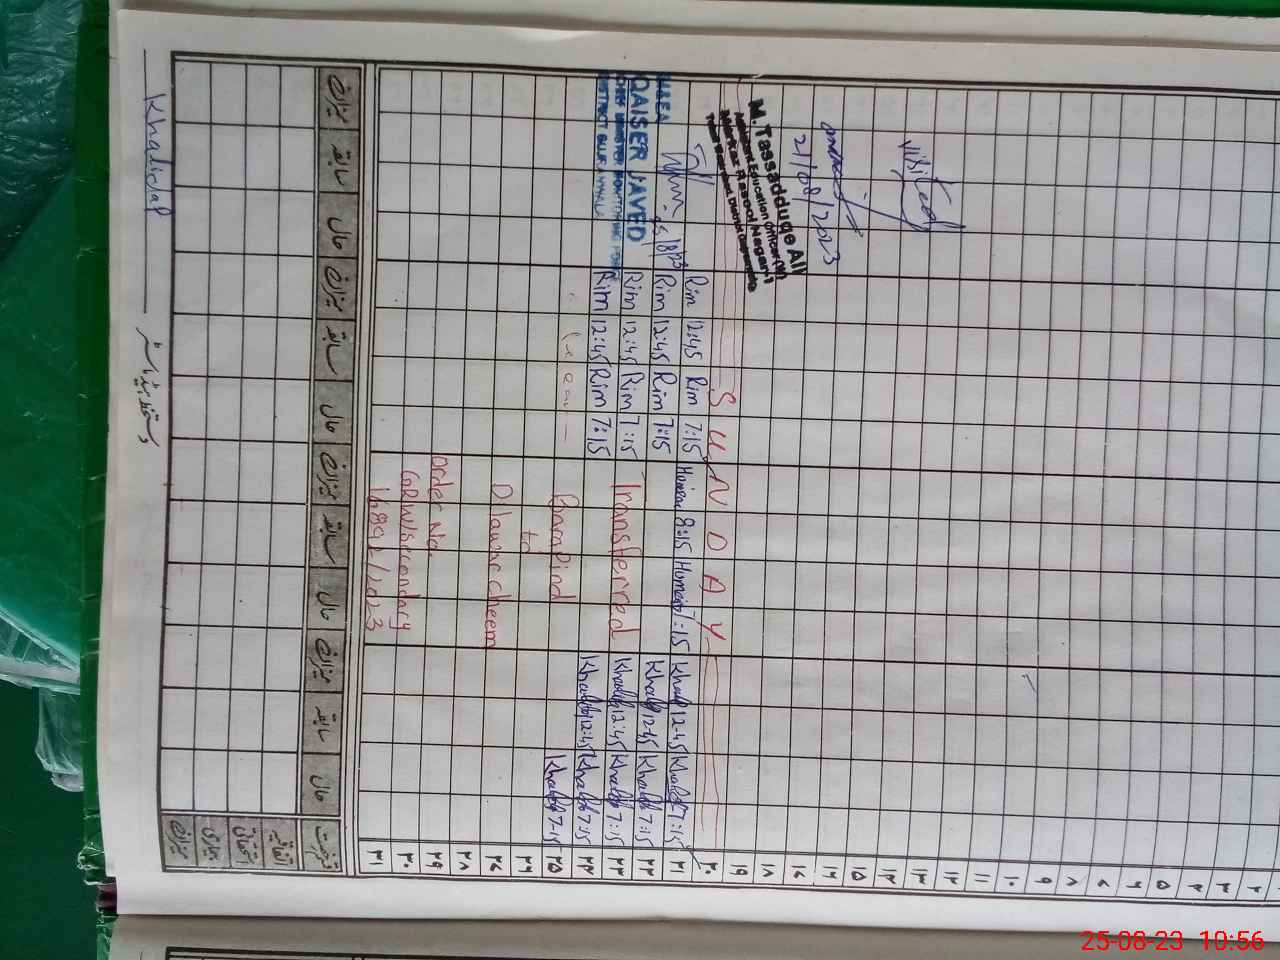 visited
21/08/2023
M. Tassadduqe Ali
Assistant Education Officer (M)
Markaz Rasool Nagar-1
QAISER JAVED
CHIEF MINISTER MONITORING FORCE
DISTRICT GUJRANWALA
۲
۳
۴
۵
۶
۷
۸
۹
۱۰
۱۱
۱۲
۱۳
۱۴
۱۵
۱۶
۱۷
۱۸
۱۹
۲۰ SUNDAY
۲۱ Khalid 7:15 Khalid 12:45 Humera 7:15 Humera 8:15 Rim 7:15 Rim 12:45
۲۲ Khalid 7:15 Khalid 12:45 Rim 7:15 Rim 12:45
۲۳ Khalid 7:15 Khalid 12:45 Transferred Rim 7:15 Rim 12:45
۲۴ Khalid 7:15 Khalid 12:45 Rim 7:15 Rim 12:45
۲۵ Khalid 7-15
۲۶ to
۲۷ Dilawar cheema
۲۸
۲۹ Order No.
۳۰ GRW/Secondary
۳۱ 16892/2023
حال سابقہ میزان حال سابقہ میزان حال سابقہ میزان حال سابقہ میزان
اتفاقیہ
استحقاقی
بیماری
میزان
دستخط ہیڈ ماسٹر
25-08-23 10:56